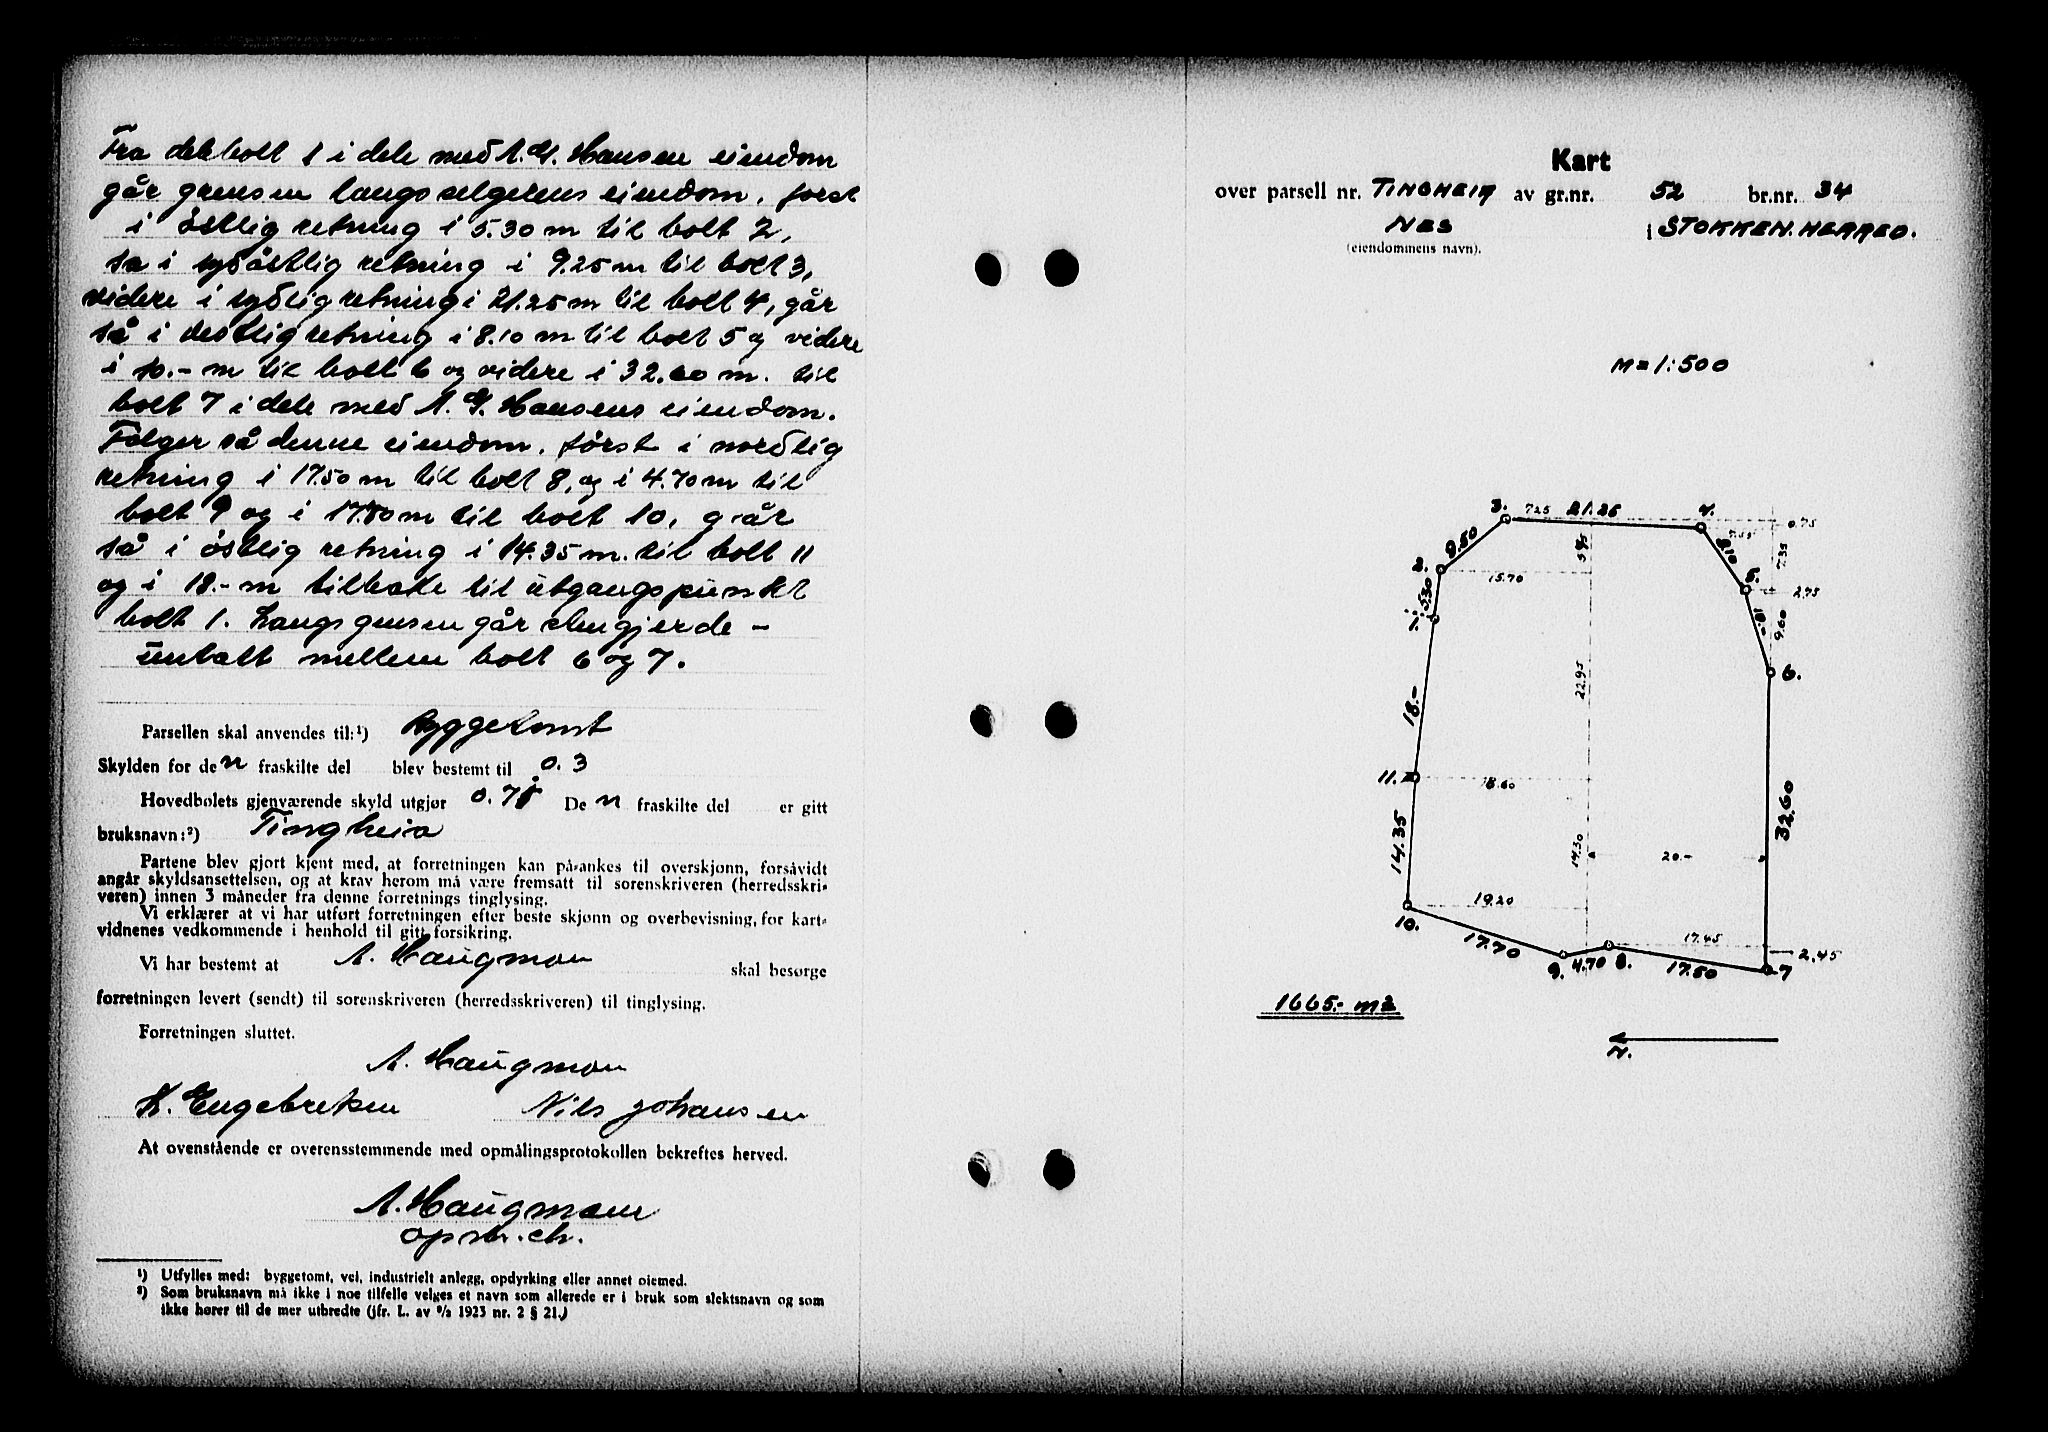 Fra delebolt 1 i dele med A. G. Hansen eiendom
går grensen langs selgerens eiendom, først
i östlig retning i 5.30 m til bolt 2,
sa i sydöstlig retning i 9.25 m til bolt 3,
videre i sydlig retning i 21.25 m til bolt 4, går
så i vestlig retning i 8.10 m til bolt 5 og videre
i 10.- m til bolt 6 og videre i 32.60 m. til
bolt 7 i dele med A. G. Hansens eiendom.
Følger så denne eiendom, først i nordlig
retning i 17.50 m til bolt 8, og i 4.70 m til
bolt 9 og i 17.80 m til bolt 10, går
så i östlig retning i 14.35 m. til bolt 11
og i 18.- m tilbake til utgangspunkt
bolt 1. Langs grensen går stengjerde -
untatt mellem bolt 6 og 7.
Parsellen skal anvendes til:¹) Byggetomt
Skylden for den fraskilte del blev bestemt til 0.3
Hovedbølets gjenværende skyld utgjør 0.75 Den fraskilte del er gitt
bruksnavn:²) Tingheia
Partene blev gjort kjent med, at forretningen kan på-ankes til overskjønn, forsåvidt
angår skyldsansettelsen, og at krav herom må være fremsatt til sorenskriveren (herredsskri-
veren) innen 3 måneder fra denne forretnings tinglysing.
Vi erklærer at vi har utført forretningen efter beste skjønn og overbevisning, for kart-
vidnenes vedkommende i henhold til gitt forsikring.
Vi har bestemt at A. Haugmon skal besørge
forretningen levert (sendt) til sorenskriveren (herredsskriveren) til tinglysing.
Forretningen sluttet.
A. Haugmon
K. Engebretsen Nils Johansen
At ovenstående er overensstemmende med opmålingsprotokollen bekreftes herved.
A. Haugmoen
opm. ch.
¹) Utfylles med: byggetomt, vei, industrielt anlegg, opdyrking eller annet øiemed.
²) Som bruksnavn må ikke i noe tilfelle velges et navn som allerede er i bruk som slektsnavn og som
ikke hører til de mer utbredte (jfr. L. av ⁹/₂ 1923 nr. 2 § 21.)
Kart
over parsell nr. TINGHEIA av gr.nr. 52 br.nr. 34
NES i STOKKEN. HERRED.
(eiendommens navn).
M = 1:500
3. 7.25 21.25 4. 0.75
9.50 5.95 7.55 8.10 7.35
2. 15.70 5. 2.75
5.30 10.- 9.60
1.
22.95 6.
18.-
11. 18.60
14.35 14.30 20.- 32.60
19.20
10. 17.70 9. 4.70 8. 17.45 17.50 2.45 7
1665.- m2
N.